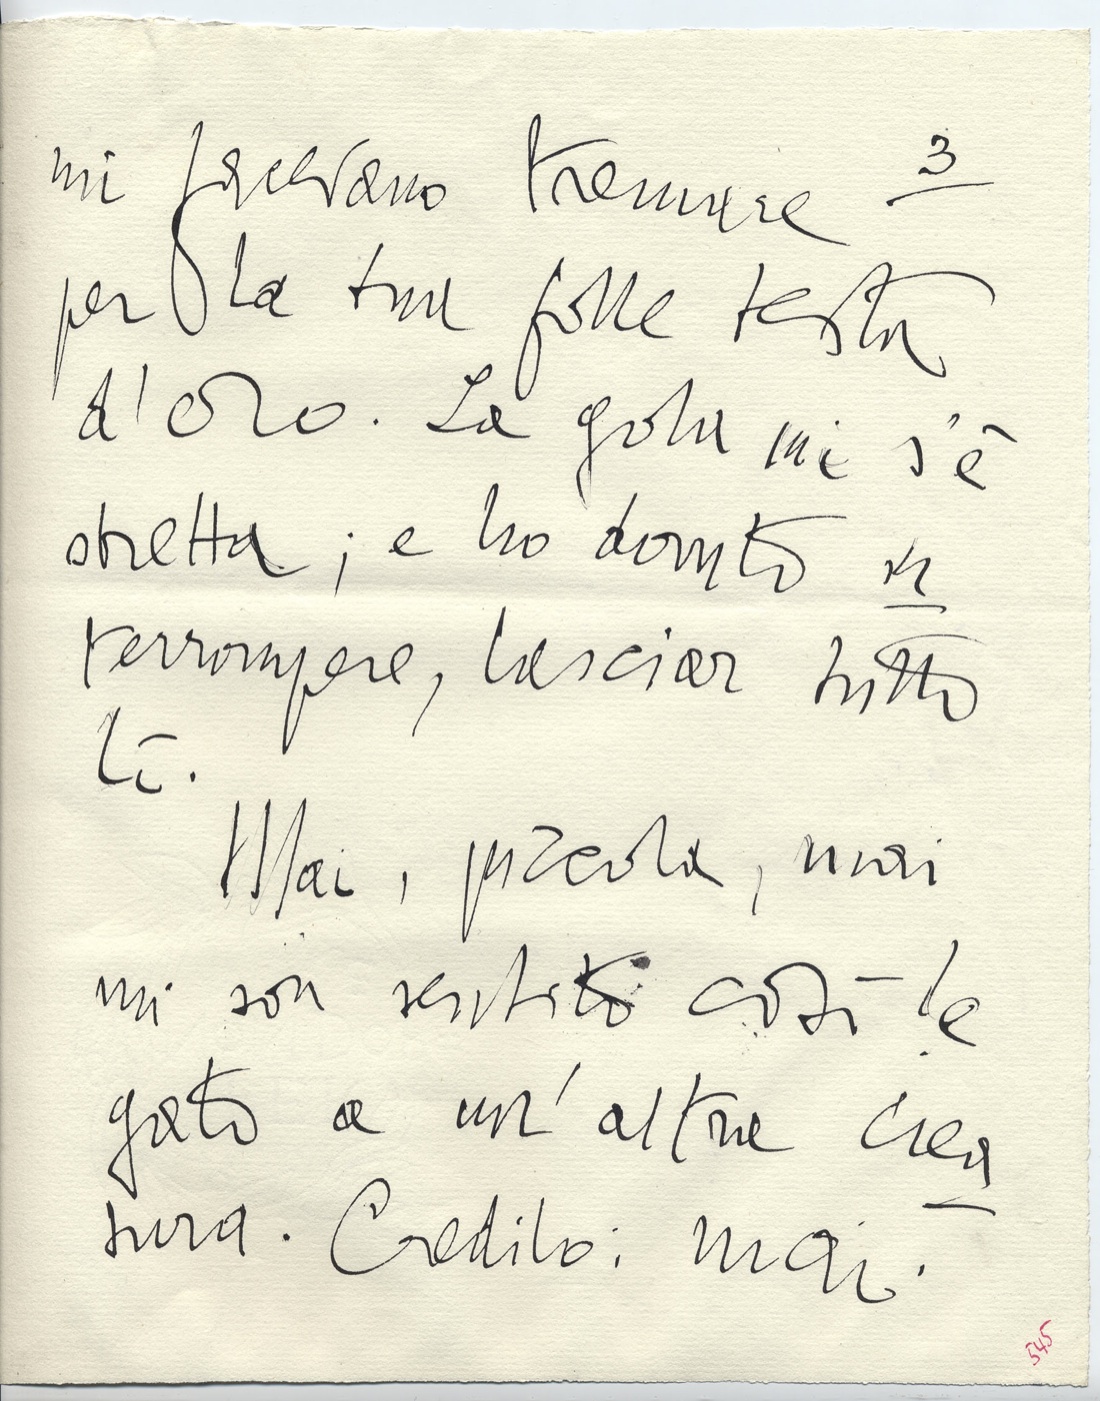 3
mi facevano tremare
per la tua folle testa
d'oro. La gola mi s'è
stretta; e ho dovuto in
terrompere, lasciar tutto
lì.
Mai, piccola, mai
mi son sentito così le
gato a un'altra crea
tura. Credilo: mai.
545